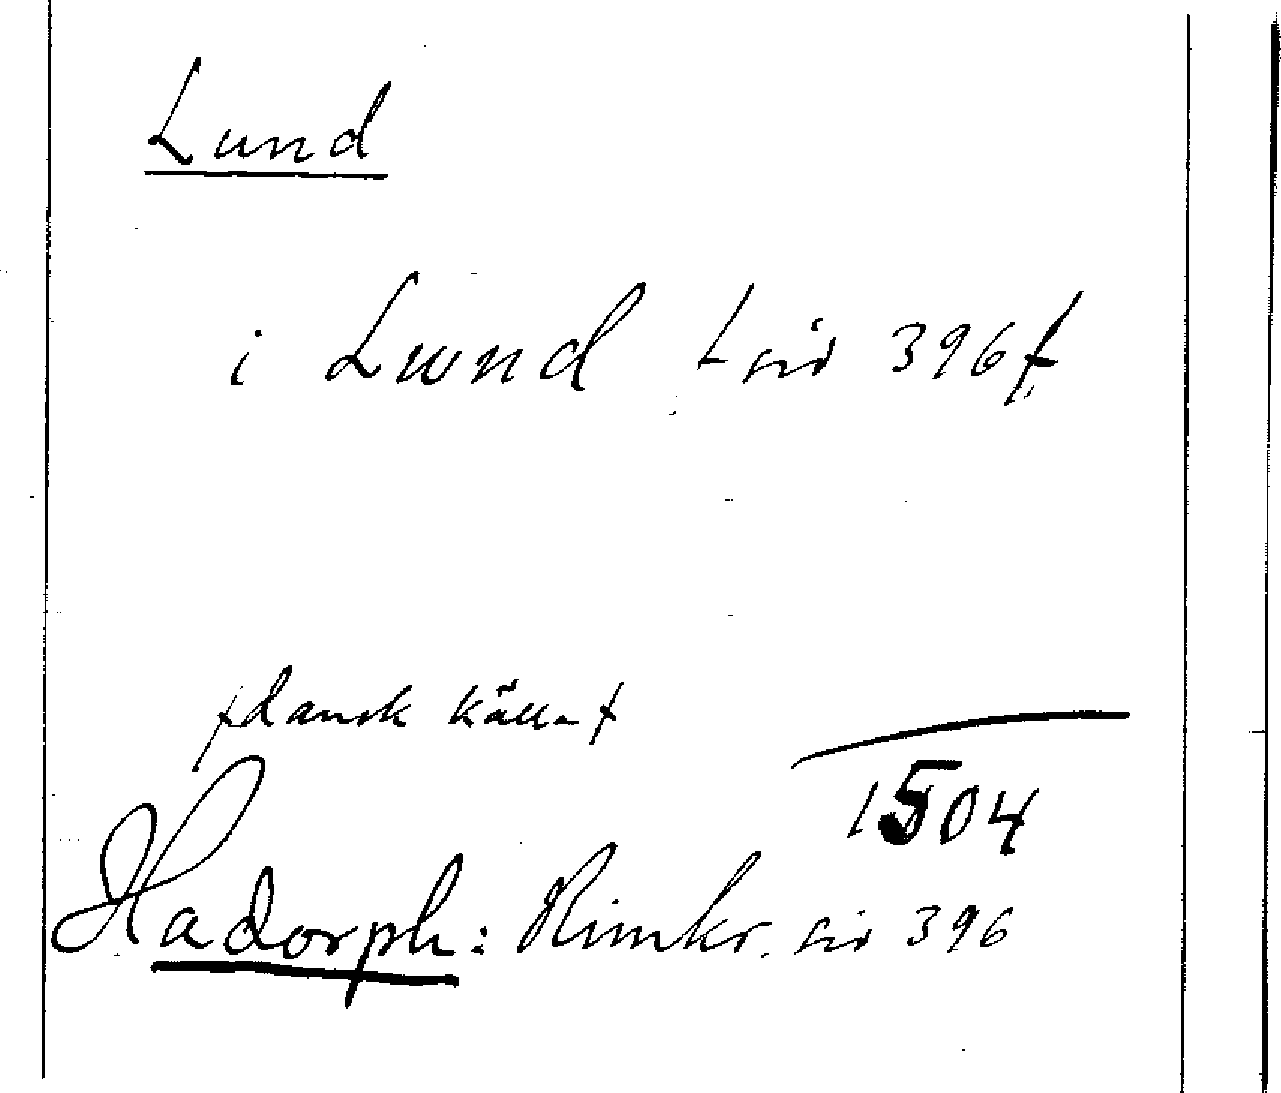 Lund
i Lwnd [sid 396]
[dansk källa]
1504
Hadorph: Rimkr. sid 396